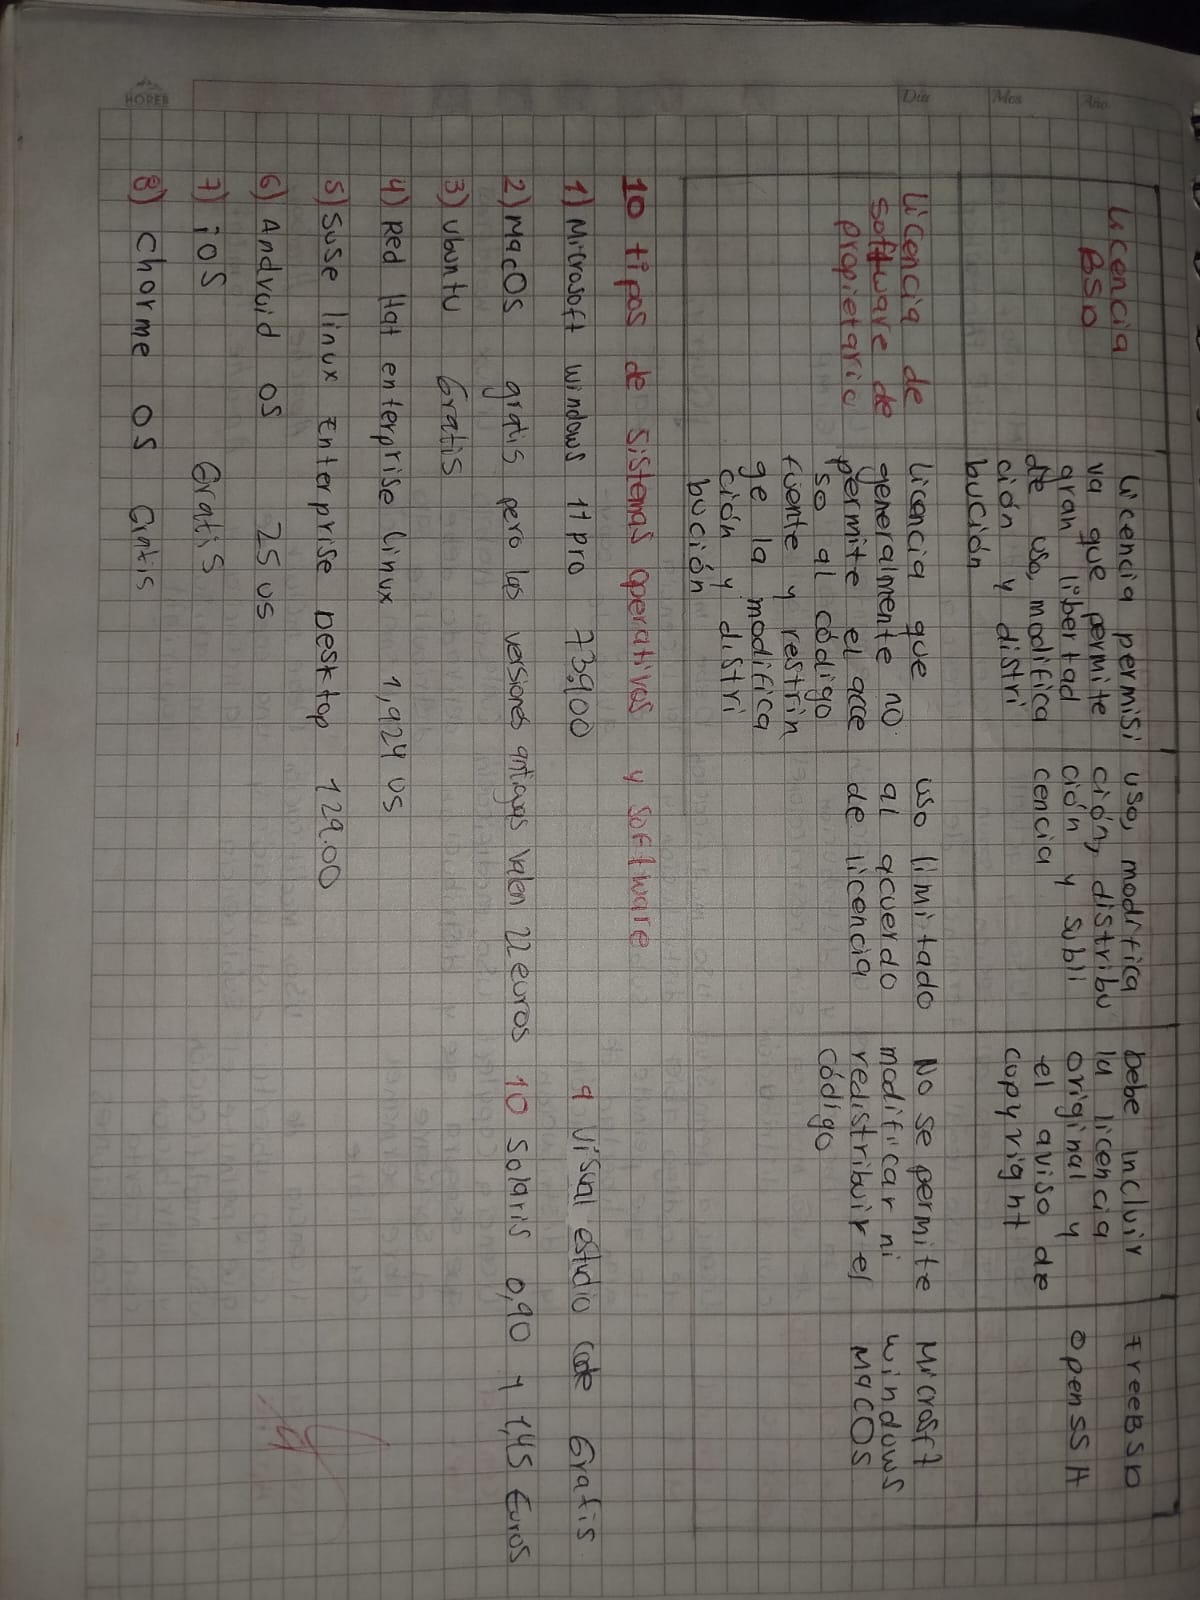 HOREB
Día
Mes
Año
Licencia
BSD
Licencia permisi
va que permite
gran libertad
de uso, modifica
ción y distri
bución
uso, modifica
ción, distribu
ción y subli
cencia
Debe incluir
la licencia
original y
el aviso de
copyright
FreeBSD
OpenSSH
Licencia de
software de
propietario
Licencia que
generalmente no
permite el acce
so al código
fuente y restrin
ge la modifica
ción y distri
bución
uso limitado
al acuerdo
de licencia
No se permite
modificar ni
redistribuir el
código
Microsft
windows
MacOS
10 tipos de sistemas operativos y software
1) Microsoft windows 11 pro 73,900
2) MacOS gratis pero las versiones antiguas valen 22 euros
3) Ubuntu Gratis
4) Red Hat enterprise Linux 1,924 us
5) Suse linux Enterprise Desktop 129.00
6) Android OS 25 us
7) iOS Gratis
8) Chorme OS Gratis
9 Visual estudio code Gratis
10 Solaris 0,90 y 1,45 Euros